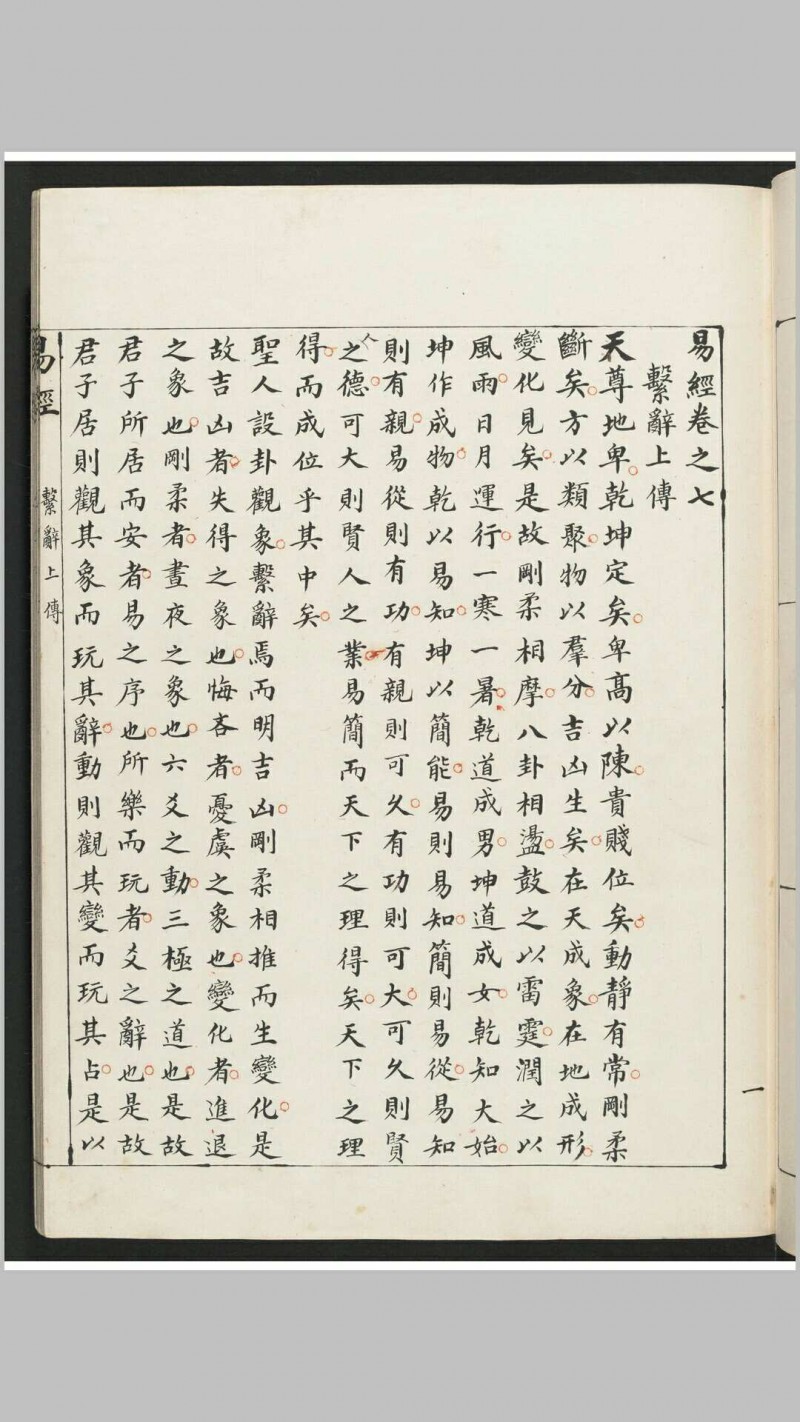 易經卷之七
繫辭上傳
天尊地卑乾坤定矣卑高以陳貴賤位矣動靜有常剛柔
斷矣方以類聚物以羣分吉凶生矣在天成象在地成形
變化見矣是故剛柔相摩八卦相盪鼓之以雷霆潤之以
風雨日月運行一寒一暑乾道成男坤道成女乾知大始
坤作成物乾以易知坤以簡能易則易知簡則易從易知
則有親易從則有功有親則可久有功則可大可久則賢
人之德可大則賢人之業易簡而天下之理得矣天下之理
得而成位乎其中矣
聖人設卦觀象繫辭焉而明吉凶剛柔相推而生變化是
故吉凶者失得之象也悔吝者憂虞之象也變化者進退
之象也剛柔者晝夜之象也六爻之動三極之道也是故
君子所居而安者易之序也所樂而玩者爻之辭也是故
君子居則觀其象而玩其辭動則觀其變而玩其占是以
易經 繫辭上傳
一